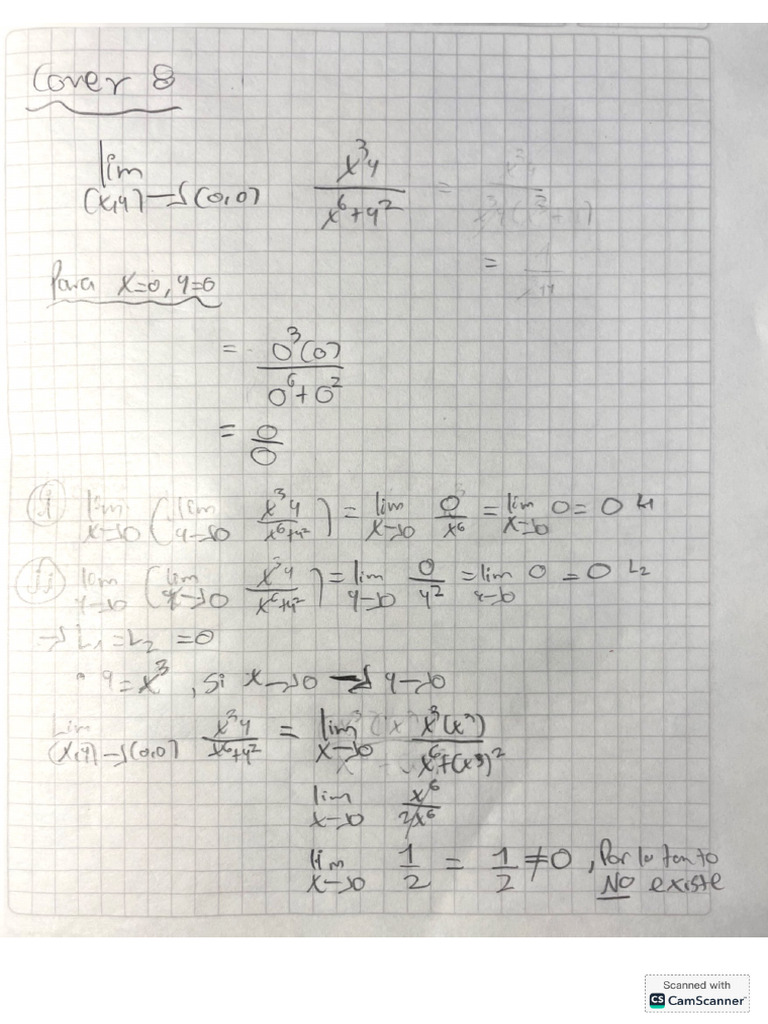 Cover 8
lim (x,y)→(0,0) x³y / x⁶+y² =
=
Para x=0, y=0
= 0³(0) / 0⁶+0²
= 0/0
i) lim x→0 ( lim y→0 x³y / x⁶+y² ) = lim x→0 0/x⁶ = lim x→0 0 = 0 L1
ii) lim y→0 ( lim x→0 x³y / x⁶+y² ) = lim y→0 0/y² = lim 0 = 0 L2
→ L1 = L2 = 0
• y = x³, si x→0 → y→0
Lim (x,y)→(0,0) x³y / x⁶+y² = lim x→0 x³(x³) / x⁶+(x³)²
lim x→0 x⁶ / 2x⁶
lim x→0 1/2 = 1/2 ≠ 0, Por lo tanto
NO existe
Scanned with
CS CamScanner